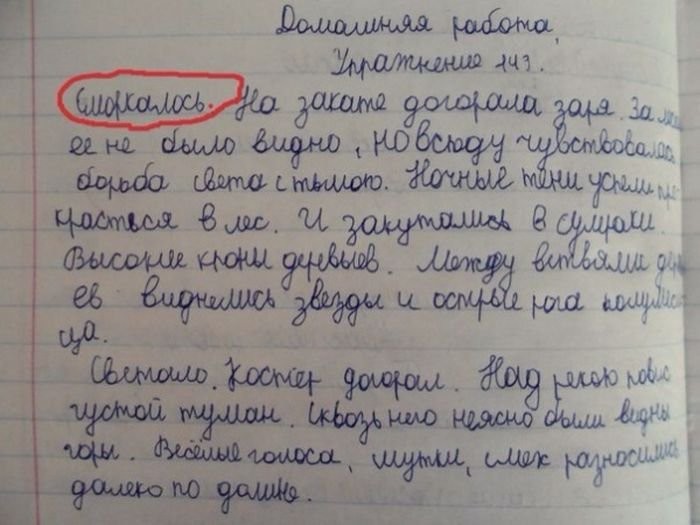 Домашняя работа,
Упражнение 143.
Сморкалось. На закате догорала заря. За
ее не было видно, но всюду чувствовалась
борьба света с тьмою. Ночные тени успели
красться в лес. И закутались в сумраки.
Высокие кроны деревьев. Между ветвями
ев виднелись звезды и острые рога
ца.
Светало. Костер догорал. Над рекою повис
густой туман. Сквозь него неясно были видны
горы. Весёлые голоса, шутки, смех разносились
далеко по долине.